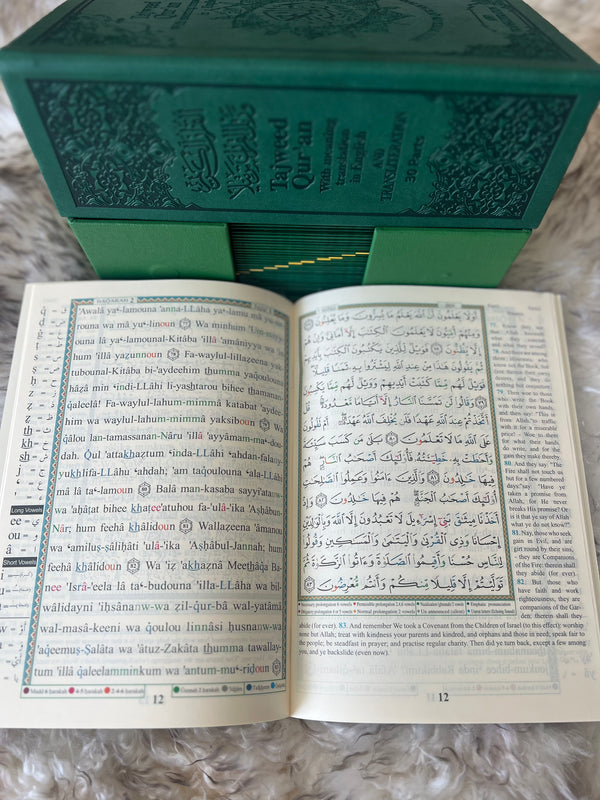 القرآن الكريم
Tajweed
Qur'an
With meaning
translation
in English
AND
TRANSLITERATION
30 Parts
BAQARAH 2
'Awalâ ya‘-lamouna 'anna-LLâha ya‘-lamu mâ yu-sir-
rouna wa mâ yu‘-linoun 77 Wa minhum 'Um-miyy-
ouna lâ ya‘-lamounal-Kitâba 'illâ 'amâniyya wa 'in
hum 'illâ yazunnoun 78 Fa-waylul-lillazeena yak-
tubounal-Kitâba bi-'aydeehim thumma yaqoulouna
hâzâ min ‘indi-LLâhi li-yashtarou bihee thamanan-
qaleelâ! Fa-waylul-lahum-mimmâ katabat 'aydee-
him wa waylul-lahum-mimmâ yaksiboun 79 Wa
qâlou lan-tamassanan-Nâru 'illâ 'ayyâmam-ma‘-dou-
dah. Qul 'attakhaztum ‘inda-LLâhi ‘ahdan-falany-
yukhlifa-LLâhu ‘ahdah; 'am taqoulouna ‘ala-LLâhi
mâ lâ ta‘-lamoun 80 Balâ man-kasaba sayyi'atanw-
wa 'ahâtat bihee khatee'atuhou fa-'ulâ-'ika 'Ashâbun-
Nâr; hum feehâ khâlidoun 81 Wallazeena 'âmanou
wa ‘amilus-sâlihâti 'ulâ-'ika 'Ashâbul-Jannah; hum
feehâ khâlidoun 82 Wa 'iz 'akhaznâ Meethâqa Ba-
nee 'Isrâ-'eela lâ ta‘-budouna 'illa-LLâha wa bil-
wâlidayni 'ihsânanw-wa zil-qur-bâ wal-yatâmâ
wal-masâ-keeni wa qoulou linnâsi husnanw-wa
'aqeemus-Salâta wa 'âtuz-Zakâta thumma tawallay-
tum 'illâ qaleelamminkum wa 'antum-mu‘-ridoun 83
Long Vowels
ee = ي
ou = و
â = ا
Short Vowels
Madd 6 harakah 4-5 harakah 2-4-6 harakah Gunnah 2 harakah 'Idgâm Tafkheem Qalqala
12
أَوَلَا يَعْلَمُونَ أَنَّ ٱللَّهَ يَعْلَمُ مَا يُسِرُّونَ وَمَا يُعْلِنُونَ ٧٧
وَمِنْهُمْ أُمِّيُّونَ لَا يَعْلَمُونَ ٱلْكِتَٰبَ إِلَّآ أَمَانِيَّ وَإِنْ هُمْ
إِلَّا يَظُنُّونَ ٧٨ فَوَيْلٌ لِّلَّذِينَ يَكْتُبُونَ ٱلْكِتَٰبَ بِأَيْدِيهِمْ
ثُمَّ يَقُولُونَ هَٰذَا مِنْ عِندِ ٱللَّهِ لِيَشْتَرُوا۟ بِهِۦ ثَمَنًا قَلِيلًا
فَوَيْلٌ لَّهُم مِّمَّا كَتَبَتْ أَيْدِيهِمْ وَوَيْلٌ لَّهُم مِّمَّا يَكْسِبُونَ
٧٩ وَقَالُوا۟ لَن تَمَسَّنَا ٱلنَّارُ إِلَّآ أَيَّامًا مَّعْدُودَةً قُلْ
أَتَّخَذْتُمْ عِندَ ٱللَّهِ عَهْدًا فَلَن يُخْلِفَ ٱللَّهُ عَهْدَهُۥٓ أَمْ تَقُولُونَ
عَلَى ٱللَّهِ مَا لَا تَعْلَمُونَ ٨٠ بَلَىٰ مَن كَسَبَ سَيِّئَةً
وَأَحَٰطَتْ بِهِۦ خَطِيٓـَٔتُهُۥ فَأُو۟لَٰٓئِكَ أَصْحَٰبُ ٱلنَّارِ هُمْ
فِيهَا خَٰلِدُونَ ٨١ وَٱلَّذِينَ ءَامَنُوا۟ وَعَمِلُوا۟ ٱلصَّٰلِحَٰتِ
أُو۟لَٰٓئِكَ أَصْحَٰبُ ٱلْجَنَّةِ هُمْ فِيهَا خَٰلِدُونَ ٨٢ وَإِذْ
أَخَذْنَا مِيثَٰقَ بَنِىٓ إِسْرَٰٓءِيلَ لَا تَعْبُدُونَ إِلَّا ٱللَّهَ وَبِٱلْوَٰلِدَيْنِ
إِحْسَانًا وَذِى ٱلْقُرْبَىٰ وَٱلْيَتَٰمَىٰ وَٱلْمَسَٰكِينِ وَقُولُوا۟
لِلنَّاسِ حُسْنًا وَأَقِيمُوا۟ ٱلصَّلَوٰةَ وَءَاتُوا۟ ٱلزَّكَوٰةَ ثُمَّ
تَوَلَّيْتُمْ إِلَّا قَلِيلًا مِّنكُمْ وَأَنتُم مُّعْرِضُونَ ٨٣
77. Know they not
that Allah knows
what they conceal
and what they reveal?
78. And there are among
them illiterates, who
know not the Book, but
(see therein their own)
desires, and they do
nothing but conjecture.
79. Then woe to those
who write the Book
with their own hands,
and then say: "This is
from Allah," to traffic
with it for a miserable
price! - Woe to them
for what their hands
do write, and for the
gain they make thereby.
80. And they say: "The
Fire shall not touch us
but for a few numbered
days:" say: "Have ye
taken a promise from
Allah, for He never
breaks His promise? Or
is it that ye say of Allah
what ye do not know?"
81. Nay, those who
seek gain in Evil, and are
girt round by their sins,
- they are Companions
of the Fire: therein shall
they abide (for ever).
82. But those who
have faith and work
righteousness, they are
companions of the Gar-
den: therein shall they
abide (for ever). 83. And remember We took a Covenant from the Children of Israel (to this effect): worship
none but Allah; treat with kindness your parents and kindred, and orphans and those in need; speak fair to
the people; be steadfast in prayer; and practise regular charity. Then did ye turn back, except a few among
you, and ye backslide (even now).
Necessary prolongation 6 vowels Permissible prolongation 2,4,6 vowels Nazalization (ghunnah) 2 vowels Emphatic pronunciation
Obligatory prolongation 4 or 5 vowels Normal prolongation 2 vowels Un announced (silent) Unrest letters (Echoing Sound)
12